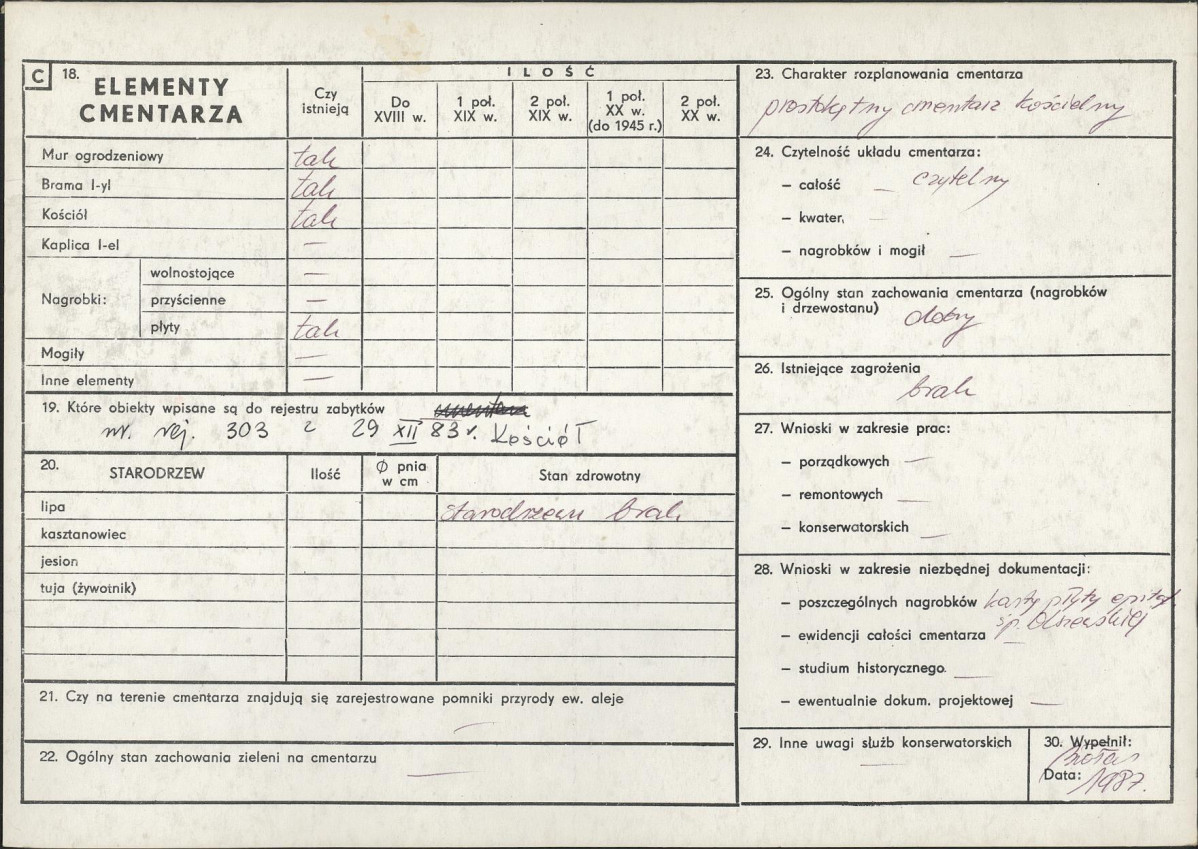 C 18. ELEMENTY CMENTARZA
Czy istnieją
ILOŚĆ
Do XVIII w.
1 poł. XIX w.
2 poł. XIX w.
1 poł. XX w. (do 1945 r.)
2 poł. XX w.
Mur ogrodzeniowy tak
Brama I-yl tak
Kościół tak
Kaplica I-el —
Nagrobki:
wolnostojące —
przyścienne —
płyty tak
Mogiły —
Inne elementy —
19. Które obiekty wpisane są do rejestru zabytków
nr. rej. 303 z 29 XII 83 r. Kościół
20. STARODRZEW
Ilość
Ø pnia w cm
Stan zdrowotny
lipa starodrzewu brak
kasztanowiec
jesion
tuja (żywotnik)
21. Czy na terenie cmentarza znajdują się zarejestrowane pomniki przyrody ew. aleje
—
22. Ogólny stan zachowania zieleni na cmentarzu
—
23. Charakter rozplanowania cmentarza
prostokątny cmentarz kościelny
24. Czytelność układu cmentarza:
– całość — czytelny
– kwater, —
– nagrobków i mogił —
25. Ogólny stan zachowania cmentarza (nagrobków
i drzewostanu) dobry
26. Istniejące zagrożenia
brak
27. Wnioski w zakresie prac:
– porządkowych —
– remontowych —
– konserwatorskich —
28. Wnioski w zakresie niezbędnej dokumentacji:
– poszczególnych nagrobków karty płyty epitaf.
śp. Olszewskiej
– ewidencji całości cmentarza —
– studium historycznego. —
– ewentualnie dokum. projektowej —
29. Inne uwagi służb konserwatorskich
—
30. Wypełnił:
Data: 1987.